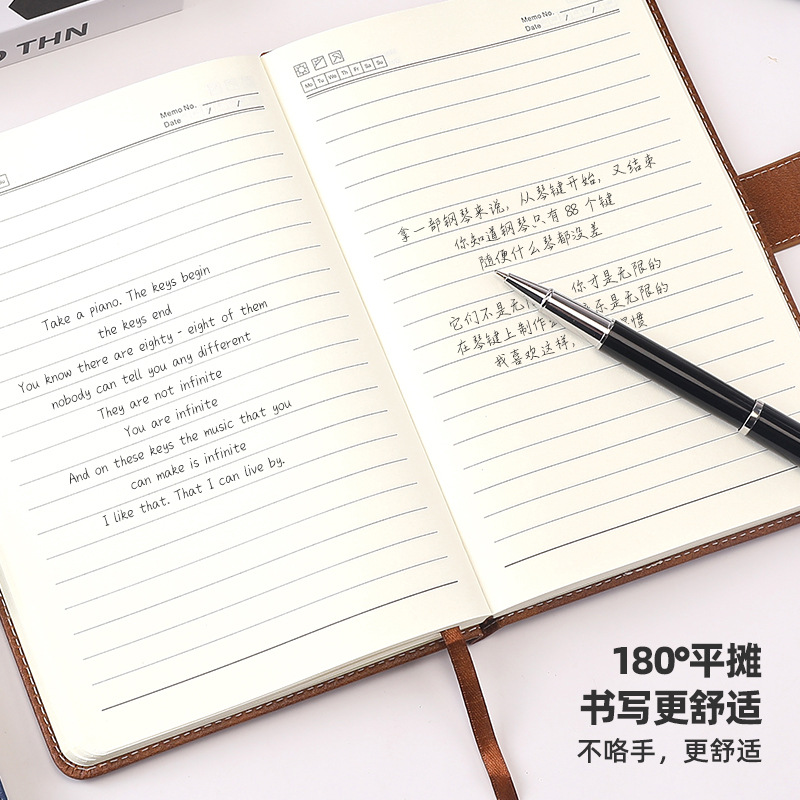 THN
Memo No.
Date / /
Su
Take a piano. The keys begin
the keys end
You know there are eighty - eight of them
nobody can tell you any different
They are not infinite
You are infinite
And on these keys the music that you
can make is infinite
I like that. That I can live by.
Memo No.
Date / /
Mo Tu We Th Fr Sa Su
拿一部钢琴来说，从琴键开始，又结束
你知道钢琴只有88个键
随便什么琴都没差
它们不是无 你才是无限的
在琴键上制作 乐是无限的
我喜欢这样， 惯
180°平摊
书写更舒适
不咯手，更舒适